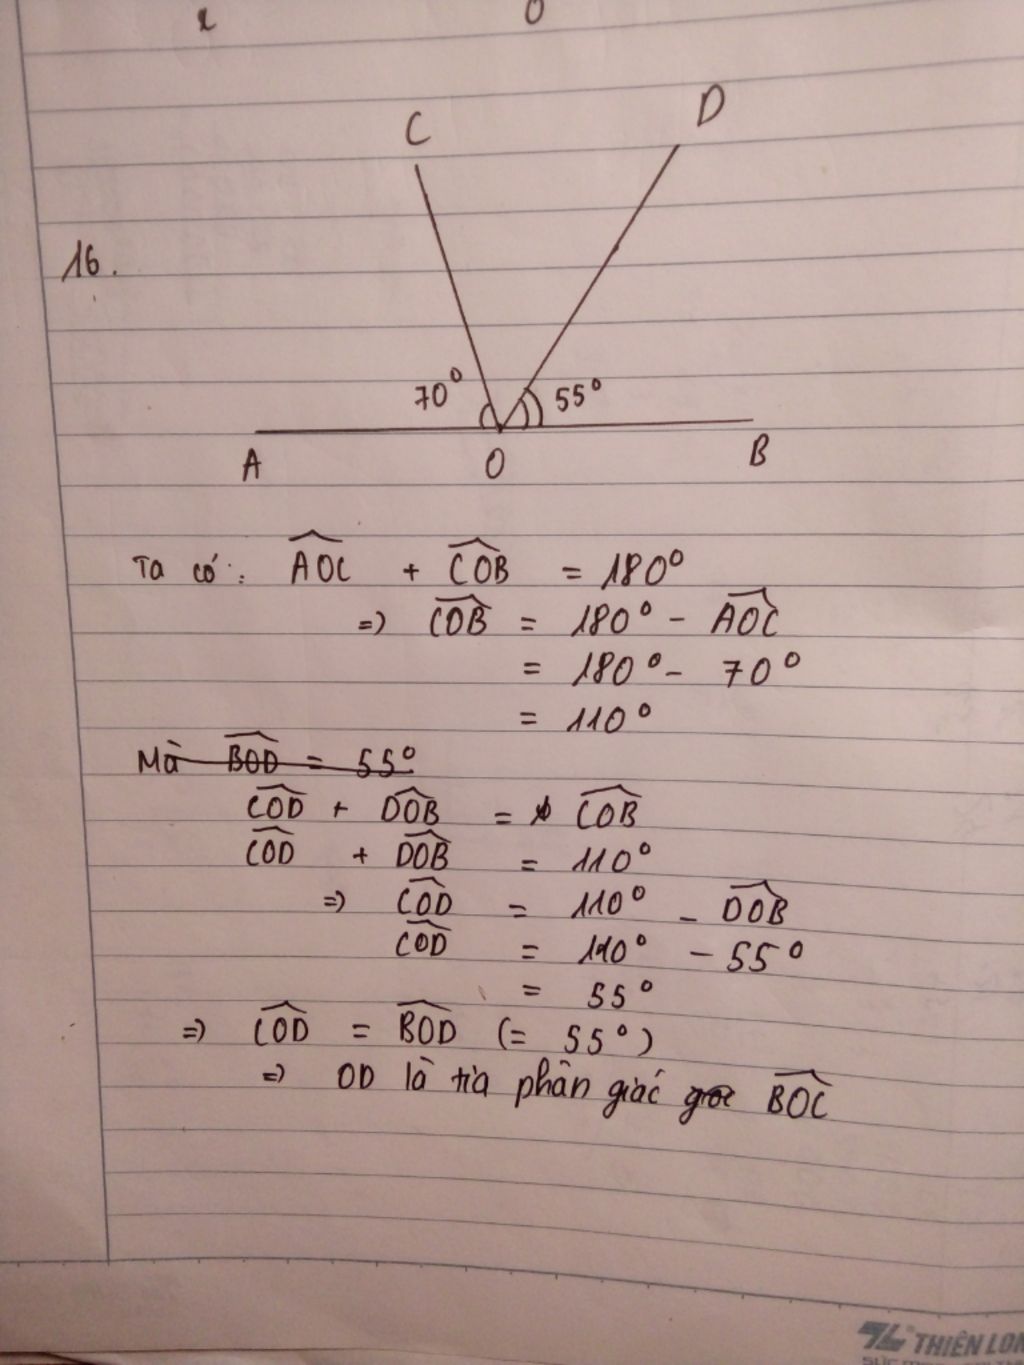 C
D
16.
70° 55°
A O B
Ta có: AOC + COB = 180°
=> COB = 180° - AOC
= 180° - 70°
= 110°
Mà BOD = 55°
COD + DOB = COB
COD + DOB = 110°
=> COD = 110° - DOB
COD = 110° - 55°
= 55°
=> COD = BOD (= 55°)
=> OD là tia phân giác BOC
THIÊN LON